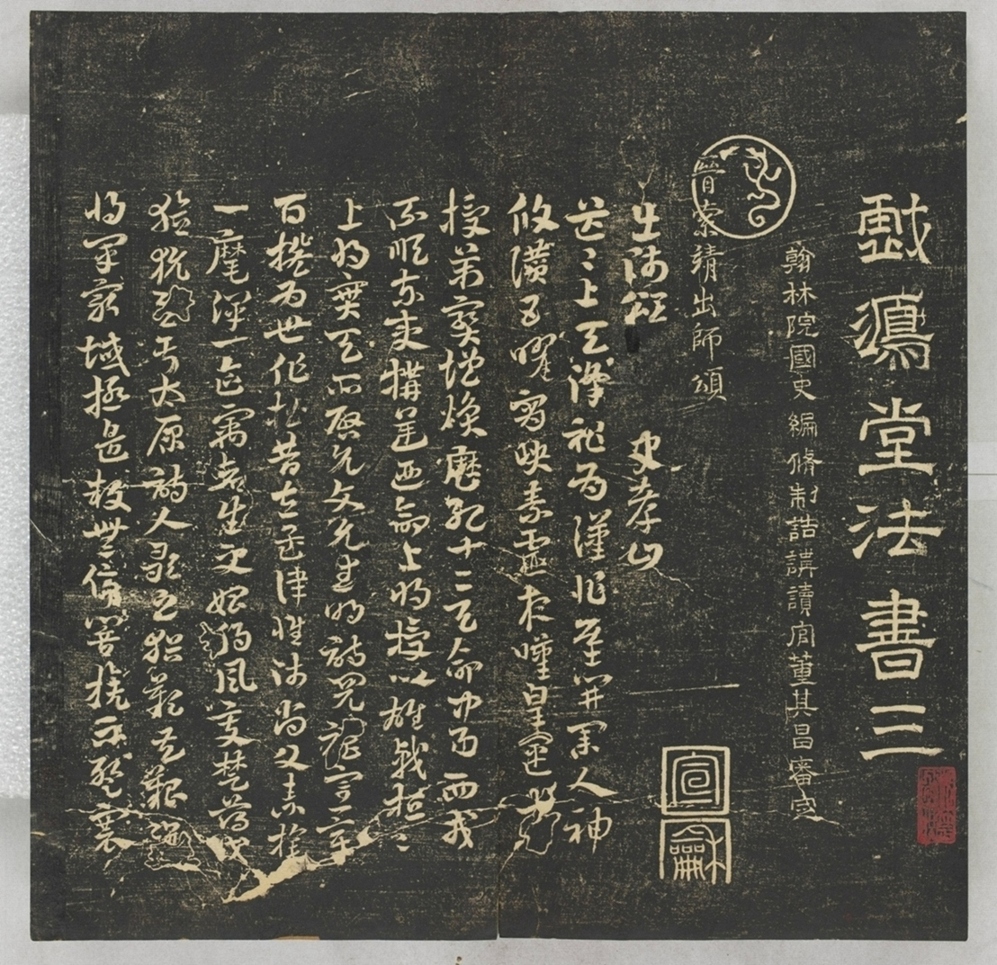 戲鴻堂法書三
翰林院國史編脩制誥講讀官董其昌審定
晉索靖出師頌
出師頌 史孝山
茫〻上天降祚為漢作基開業人神
攸讚五曜霄映素靈夜嘆皇運來
授萬寶增煥歷紀十二天命中易西戎
不順東夷構逆命上將授以雄戟桓〻
上將實天所啓允文允武明詩閱禮憲章
百揆為世作楷昔在孟津惟師尚父素旄
一麾渾一區寓蒼生更始朔風變楚薄伐
獫狁至于太原詩人歌之猶歎其艱況
將軍窮域極邊鼓無停響旗不蹔褰
宣龢